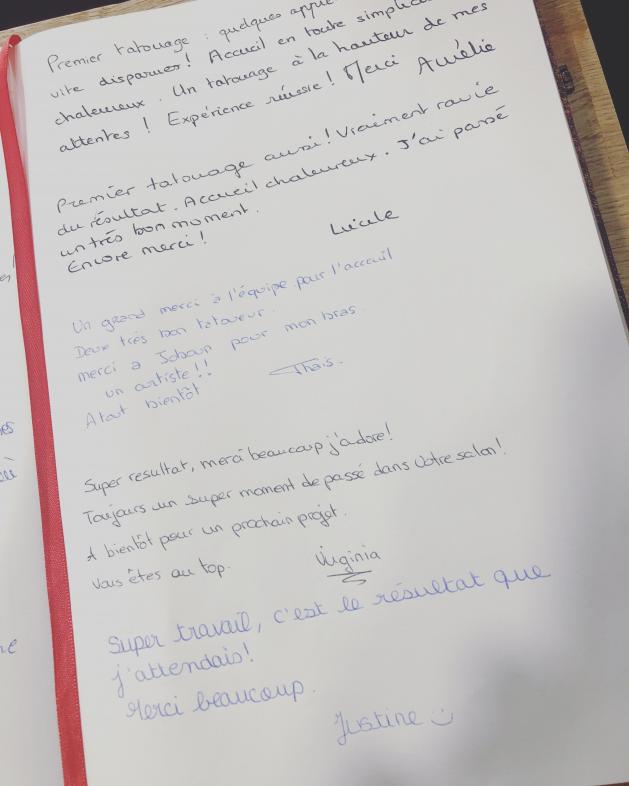 Premier tatouage : quelques
vite disparues! Accueil en toute
chaleureux. Un tatouage à la hauteur de mes
attentes ! Expérience réussie ! Merci Aurélie
Premier tatouage aussi ! Vraiment ravie
du résultat. Accueil chaleureux. J'ai passé
un très bon moment.
Encore merci !
Lucile
Un grand merci à l'équipe pour l'acceuil
Deux très bon tatoueur.
merci a pour mon bras.
un artiste !!
A tout bientôt
Thaïs.
Super resultat, merci beaucoup j'adore!
Toujours un super moment de passé dans votre salon!
A bientôt pour un prochain projet.
Vous êtes au top.
Virginia
Super travail, c'est le résultat que
j'attendais!
Merci beaucoup.
Justine